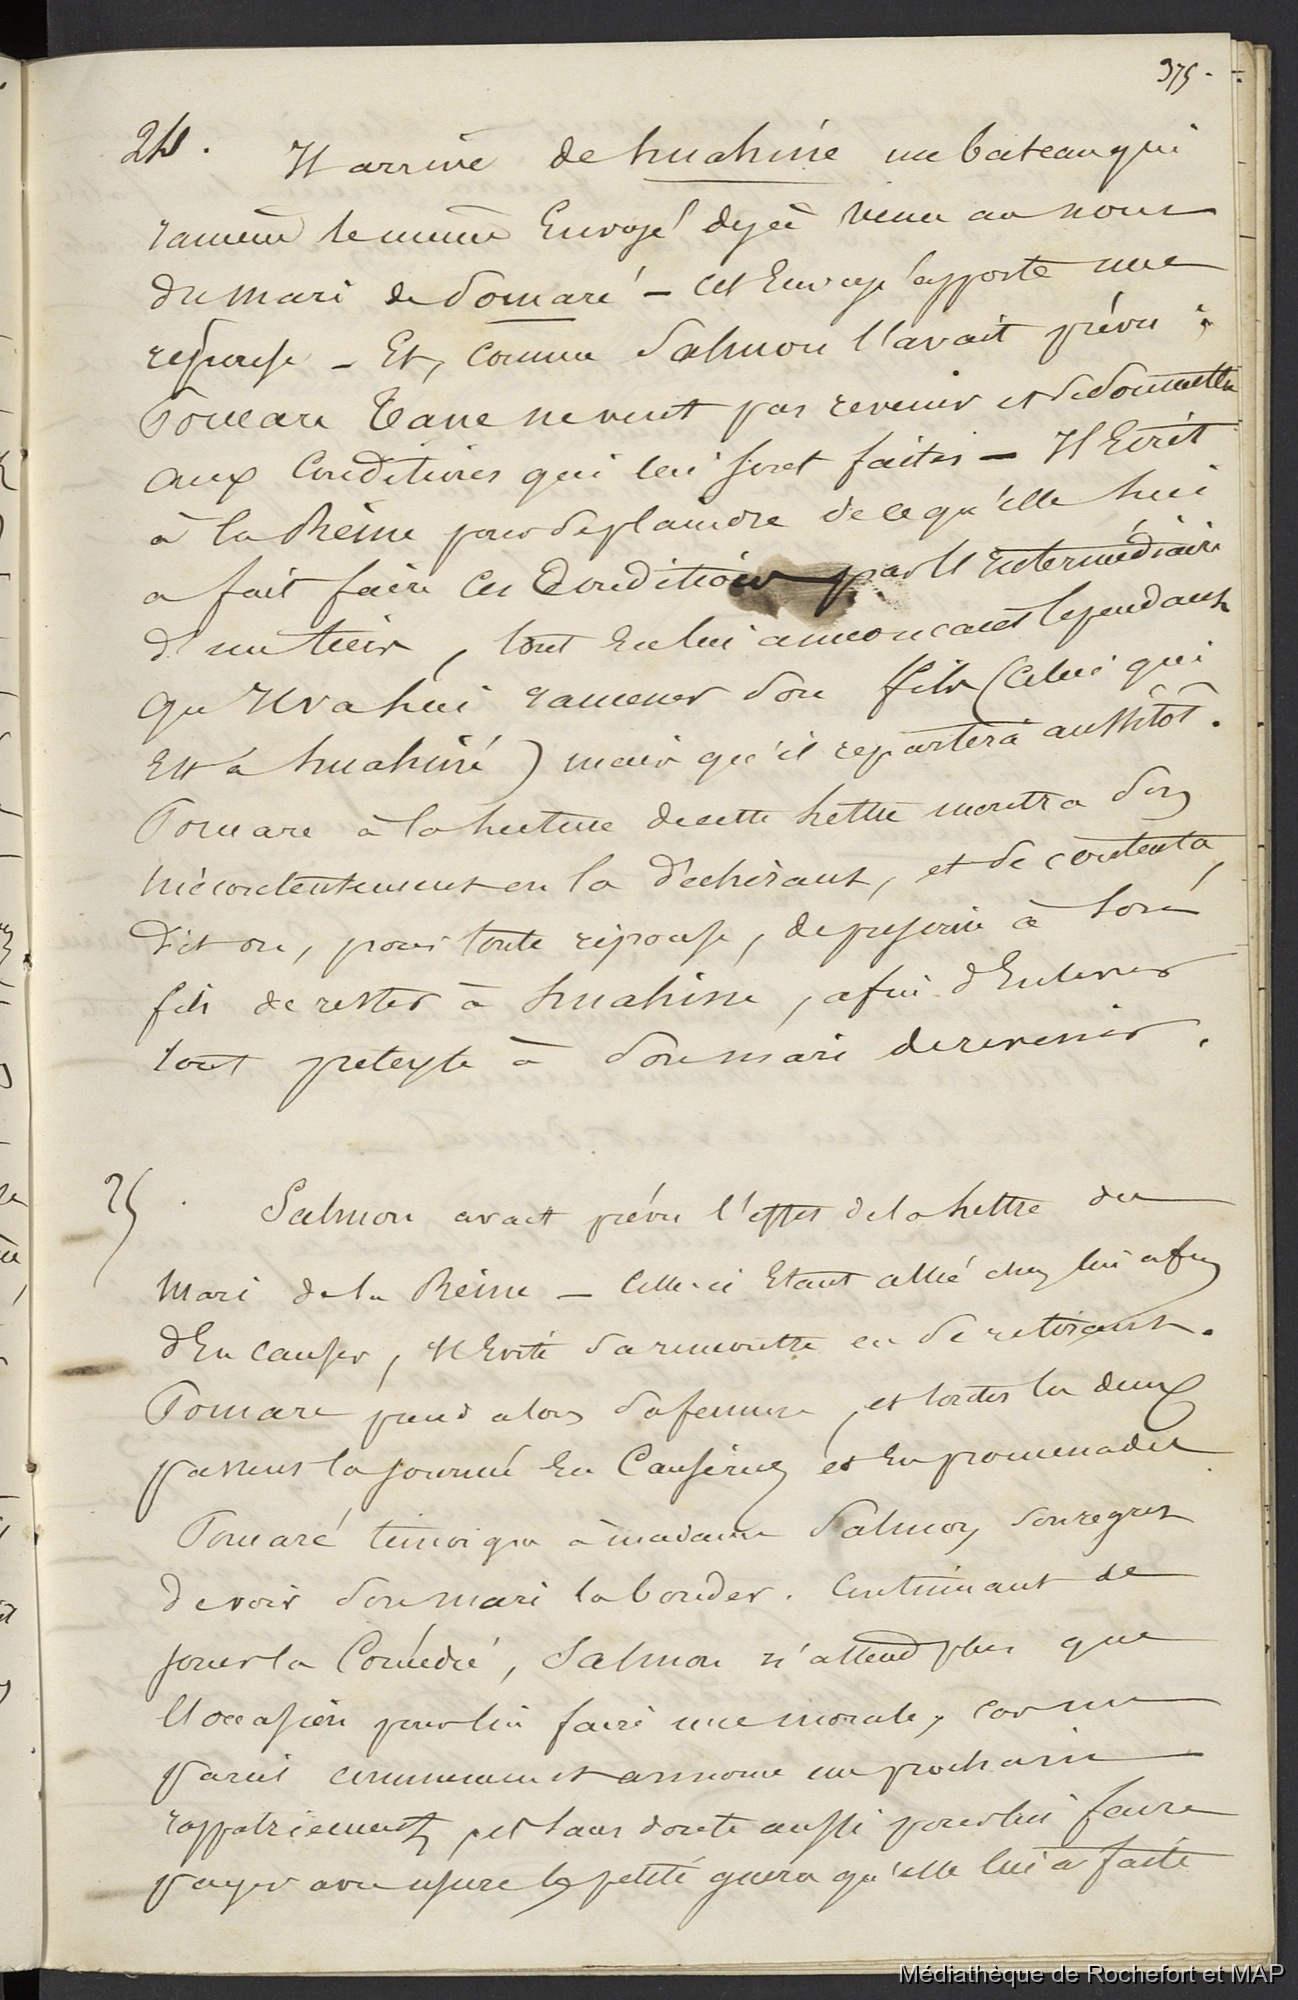 375.
24. Il arrive de huahiné un bateau qui
ramène le même Envoyé déjà venu au nom
du mari de Pomaré – Cet Envoyé apporte une
réponse – Et, comme Salmon l'avait prévu,
Pomare Tane ne veut pas revenir et se soumettre
aux Conditions qui lui sont faites – Il Ecrit
à la Reine pour se plaindre de ce qu'elle lui
a fait faire ces Conditions par l'intermédiaire
d'un tiers, tout en lui annonçant cependant
qu'Il va lui ramener son fils (Celui qui
Est à huahiné) mais qu'il repartira aussitôt.
Pomare à la lecture de cette lettre montra son
mécontentement en la déchirant, et se contenta,
dit on, pour toute réponse, de prescrire à son
fils de rester à huahine, afin d'Enlever
tout pretexte à son mari de revenir.
25. Salmon avait prévu l'effet de la lettre du
mari de la Reine – Celle-ci Etant allé chez lui afin
d'En causer, Il Evite sa rencontre en se retirant.
Pomare prend alors sa femme, et toutes les deux
passent la journée En Causeries et En promenades
Pomaré témoigne à madame Salmon son regret
de voir son mari la bouder. Continuant de
jouer la Comédie, Salmon n'attend plus que
l'occasion pour lui faire une morale, car un
pareil commencement annonce un prochain
rappatriement, et sans doute aussi pour lui faire
payer avec usure la petite guerre qu'elle lui a faite
Médiathèque de Rochefort et MAP